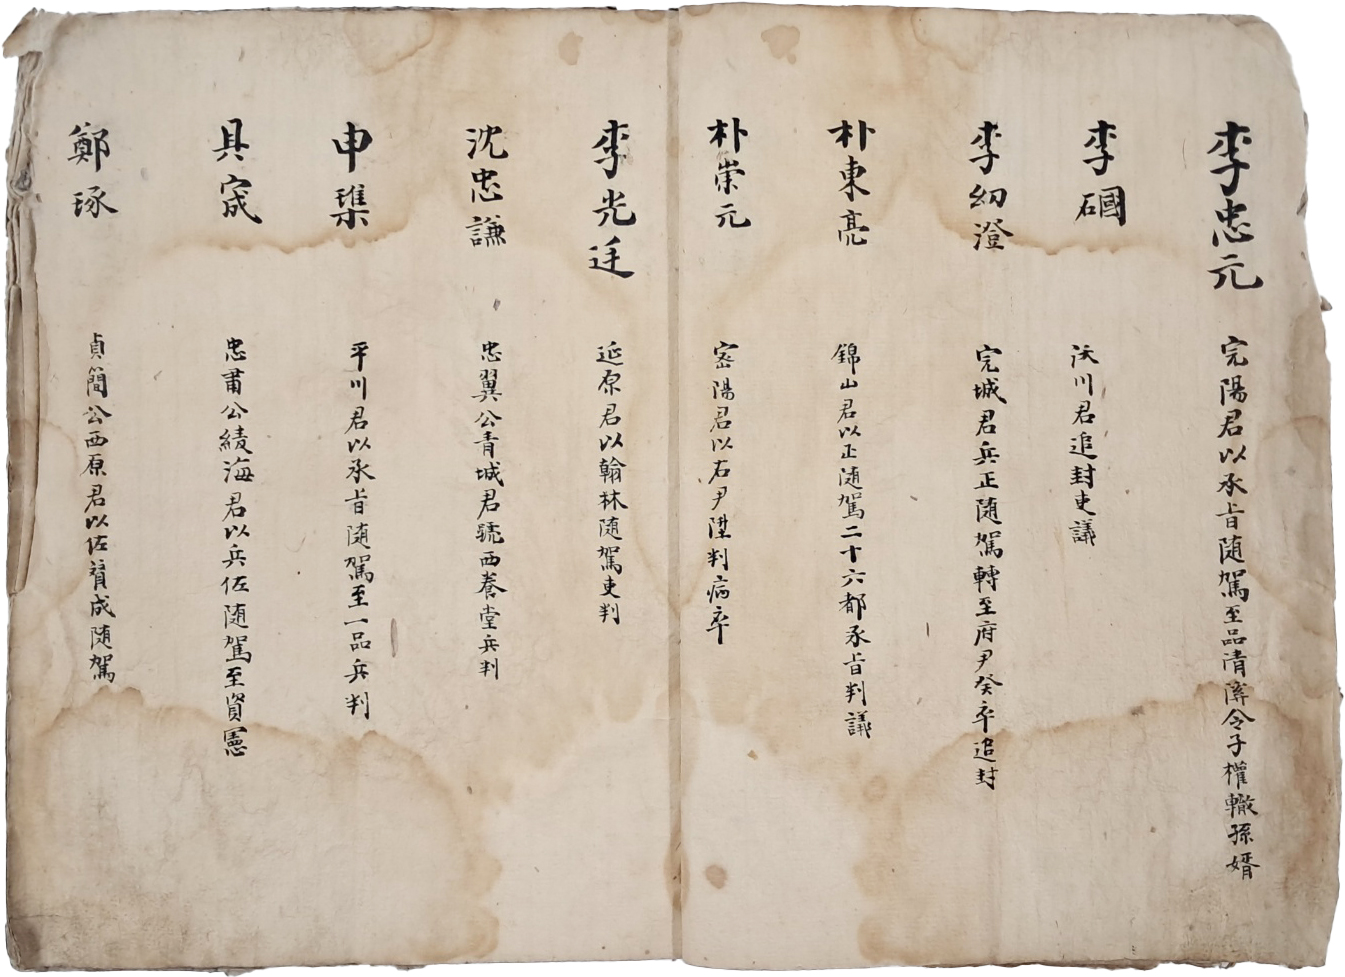 李忠元 完陽君以承旨随駕至品清陟令子權轍孫婿
李碅 沃川君追封吏議
李幼澄 完城君兵正随駕轉至府尹癸卒追封
朴東亮 錦山君以正随駕二十六都承旨判議
朴崇元 密陽君以右尹陞判病卒
李光廷 延原君以翰林随駕吏判
沈忠謙 忠翼公青城君號西養堂兵判
申磼 平川君以承旨随駕至一品兵判
具宬 忠肅公綾海君以兵佐随駕至資憲
鄭琢 貞簡公西原君以佐賛成随駕